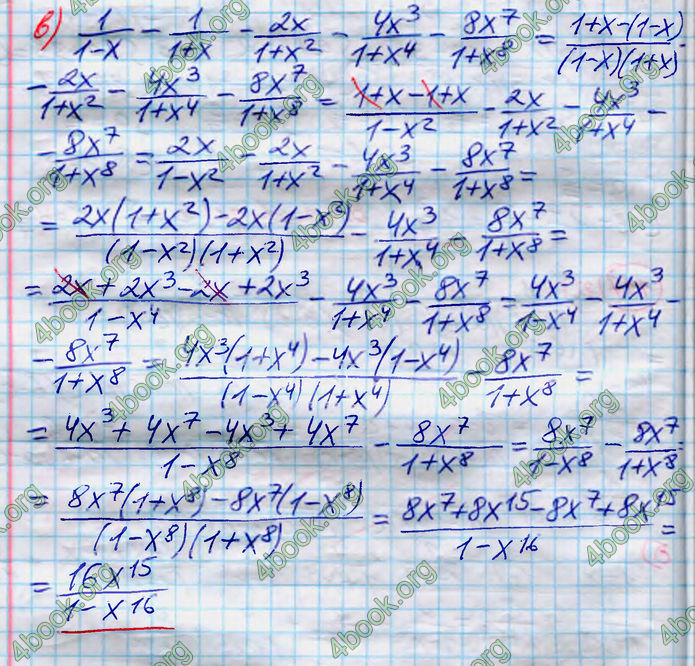 в) 1/(1-x) - 1/(1+x) - 2x/(1+x²) - 4x³/(1+x⁴) - 8x⁷/(1+x⁸) = (1+x-(1-x))/((1-x)(1+x)) -
- 2x/(1+x²) - 4x³/(1+x⁴) - 8x⁷/(1+x⁸) = (1+x-1+x)/(1-x²) - 2x/(1+x²) - 4x³/(1+x⁴) -
- 8x⁷/(1+x⁸) = 2x/(1-x²) - 2x/(1+x²) - 4x³/(1+x⁴) - 8x⁷/(1+x⁸) =
= (2x(1+x²)-2x(1-x²))/((1-x²)(1+x²)) - 4x³/(1+x⁴) - 8x⁷/(1+x⁸) =
= (2x+2x³-2x+2x³)/(1-x⁴) - 4x³/(1+x⁴) - 8x⁷/(1+x⁸) = 4x³/(1-x⁴) - 4x³/(1+x⁴) -
- 8x⁷/(1+x⁸) = (4x³(1+x⁴)-4x³(1-x⁴))/((1-x⁴)(1+x⁴)) - 8x⁷/(1+x⁸) =
= (4x³+4x⁷-4x³+4x⁷)/(1-x⁸) - 8x⁷/(1+x⁸) = 8x⁷/(1-x⁸) - 8x⁷/(1+x⁸) =
= (8x⁷(1+x⁸)-8x⁷(1-x⁸))/((1-x⁸)(1+x⁸)) = (8x⁷+8x¹⁵-8x⁷+8x¹⁵)/(1-x¹⁶) =
= 16x¹⁵/(1-x¹⁶)
4book.org